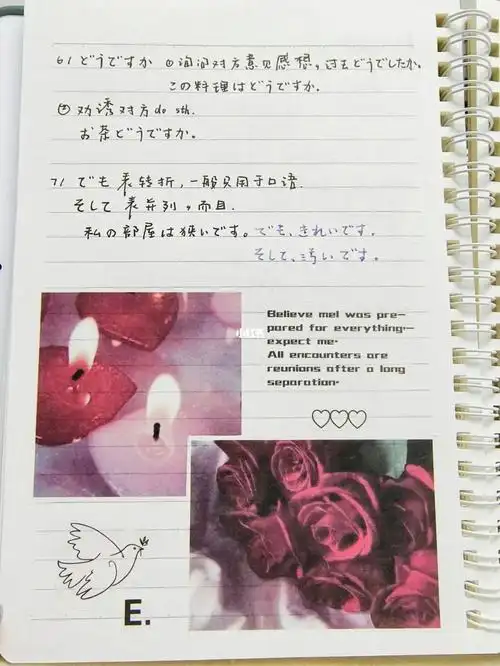 6) どうですか ①询问对方意见感想，过去どうでしたか。
この料理はどうですか.
②劝诱对方do sth.
お茶どうですか。
7) でも 表转折，一般只用于口语.
そして 表并列，而且.
私の部屋は狭いです。でも、きれいです.
そして、汚いです。
小红书
Believe me! was pre-
pared for everything—
expect me.
All encounters are
reunions after a long
separation.
E.